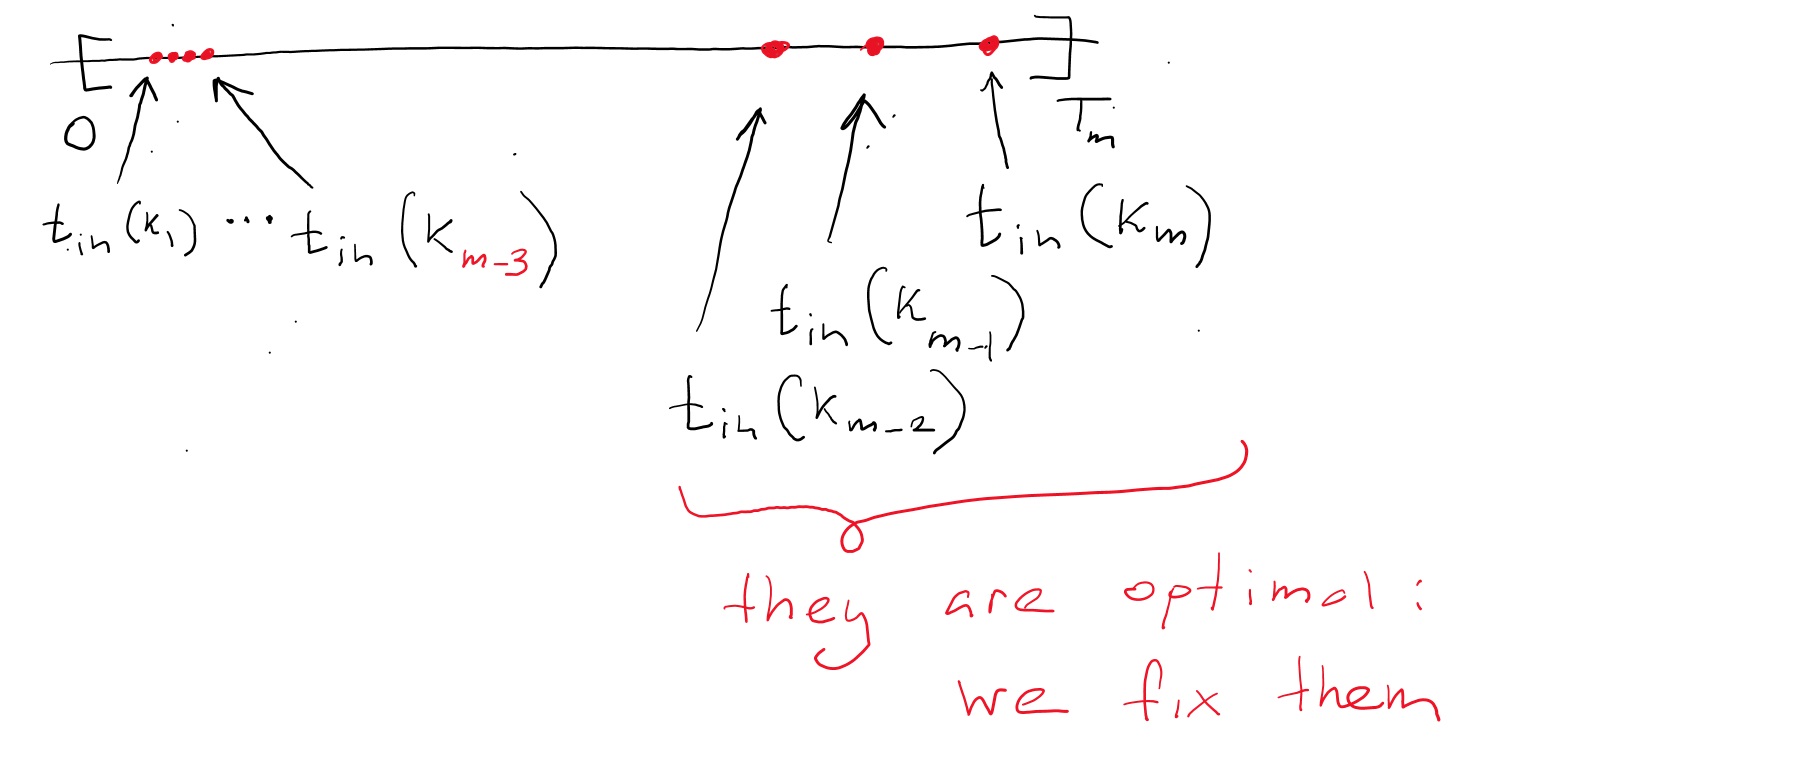 [ ]
0 T_m
t_in(k_1) ... t_in(k_{m-3}) t_in(k_m)
t_in(k_{m-1})
t_in(k_{m-2})
they are optimal:
we fix them